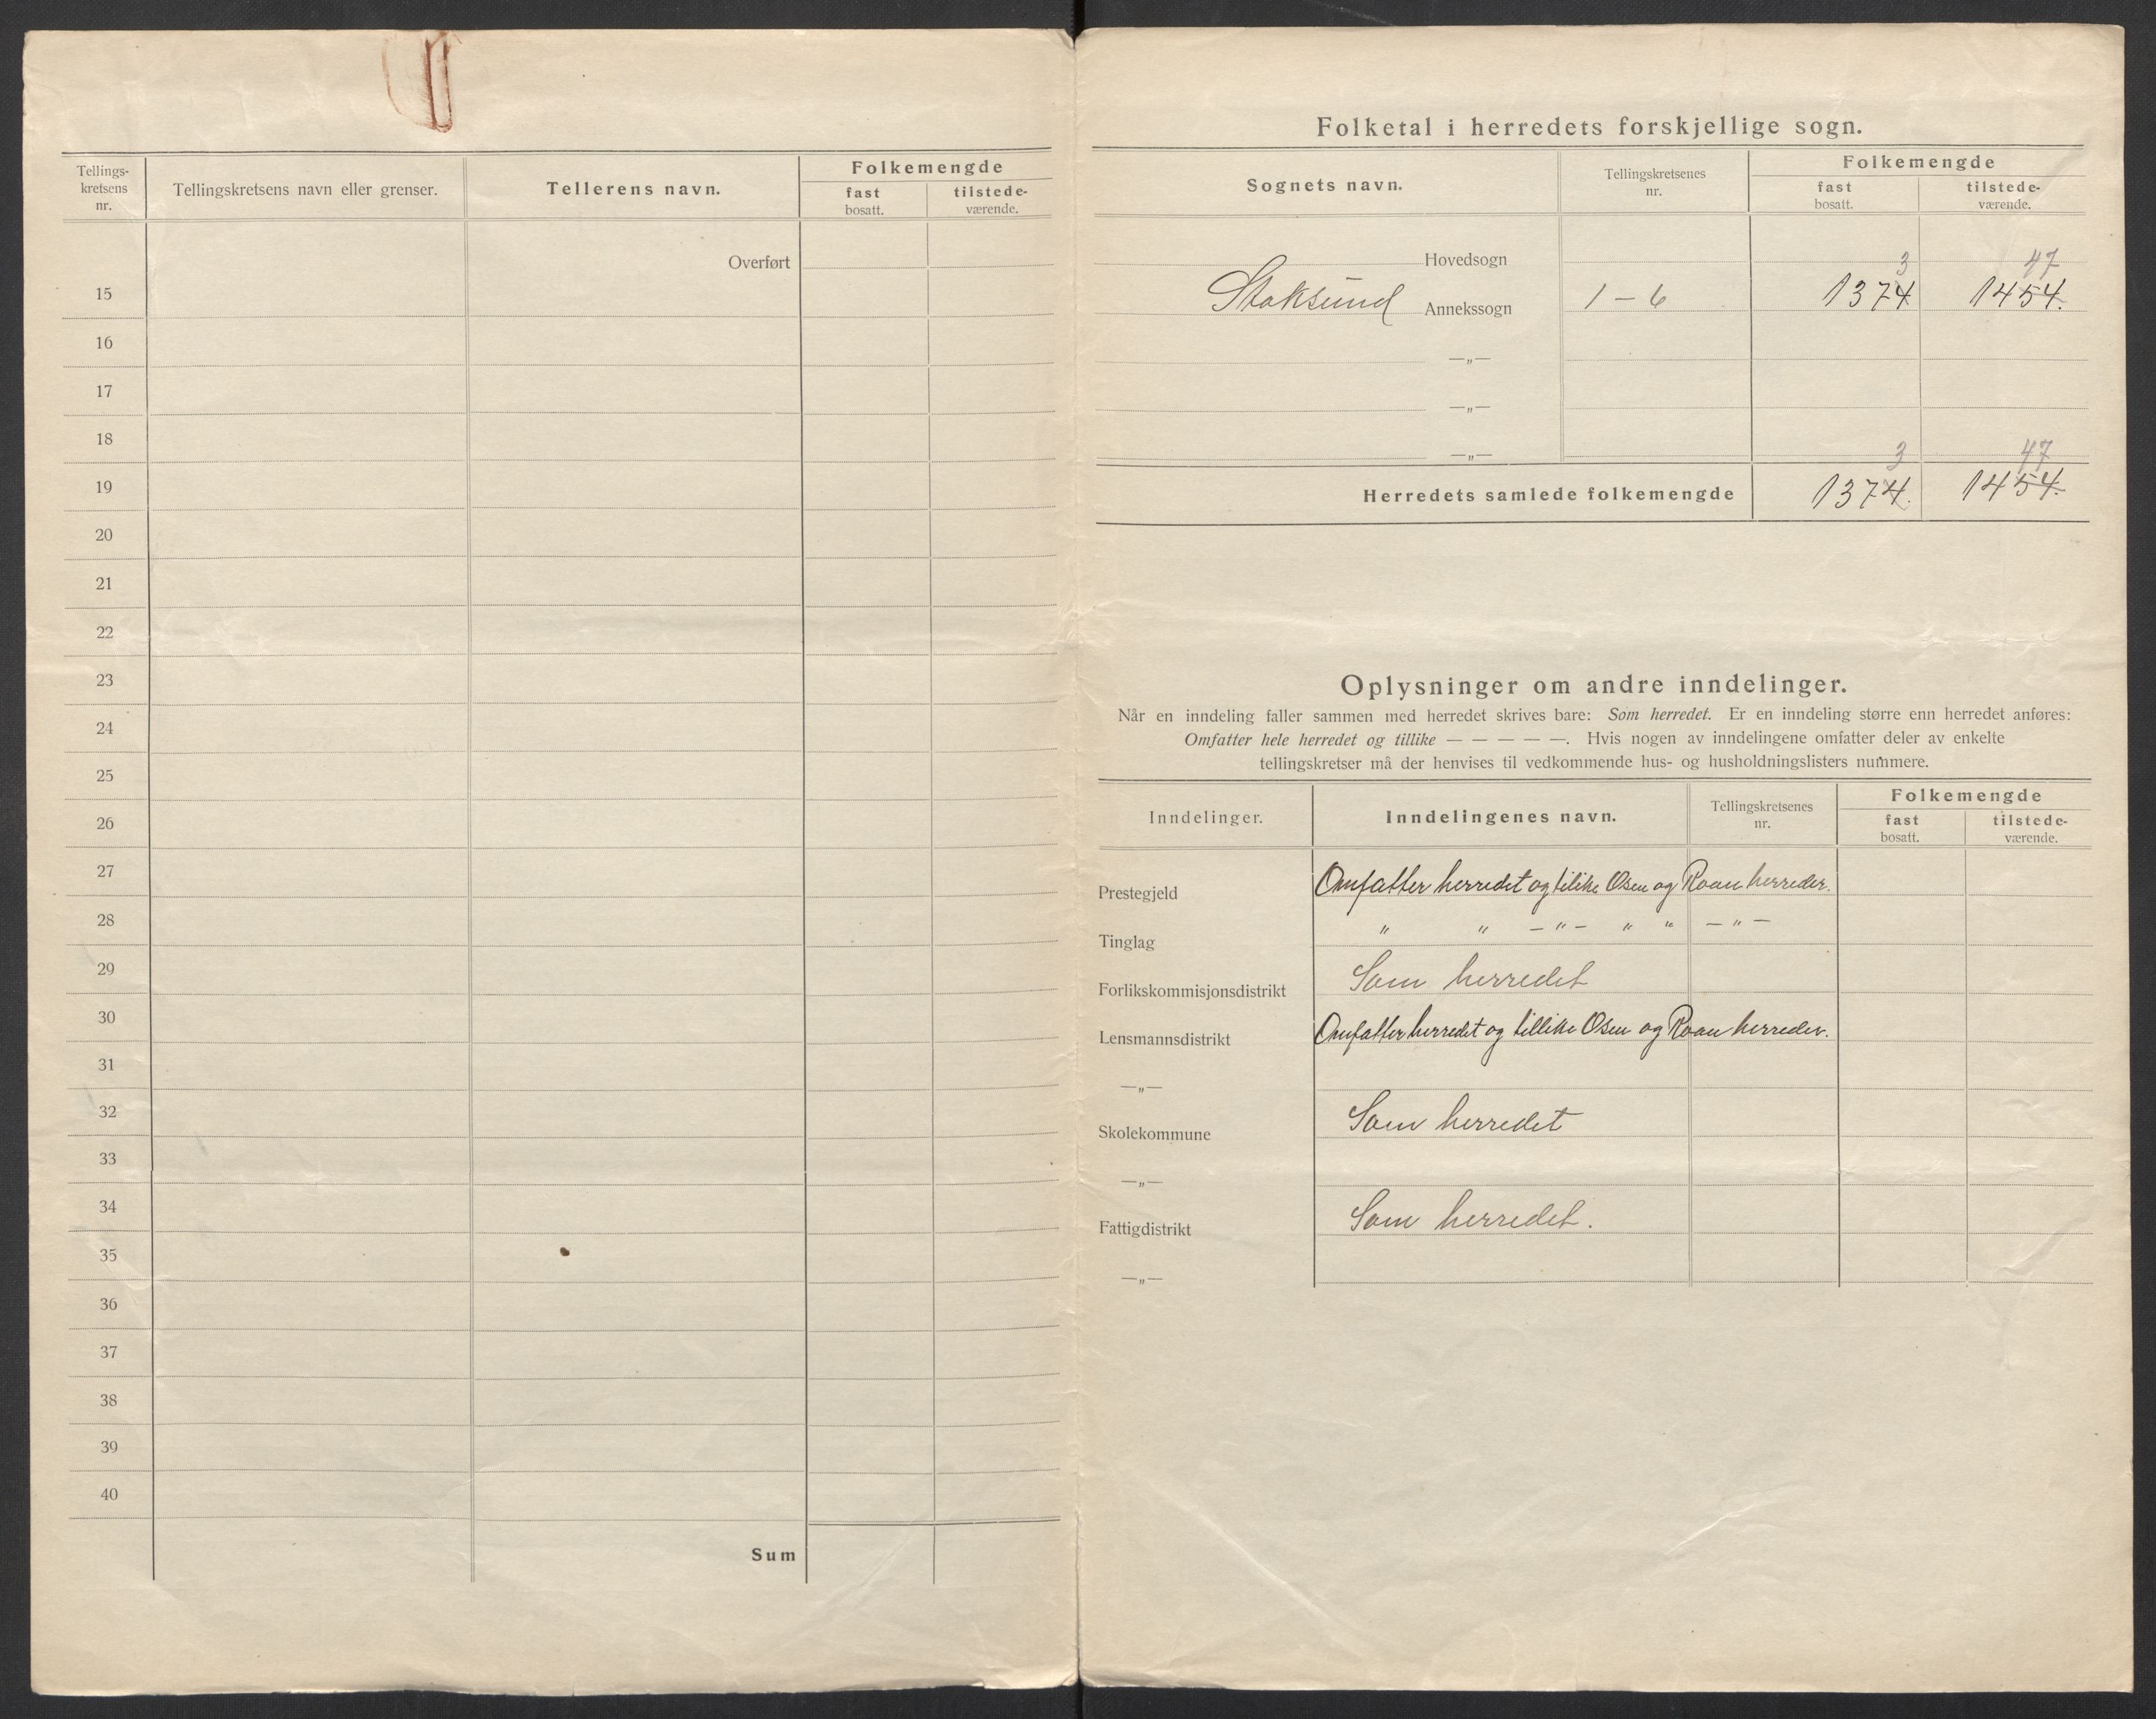 Tellings-
kretsens
nr.
Tellingskretsens navn eller grenser.
Tellerens navn.
Folkemengde
fast
bosatt.
tilstede-
værende.
Overført
15
16
17
18
19
20
21
22
23
24
25
26
27
28
29
30
31
32
33
34
35
36
37
38
39
40
Sum
Folketal i herredets forskjellige sogn.
Sognets navn.
Tellingskretsenes
nr.
Folkemengde
fast
bosatt.
tilstede-
værende.
Hovedsogn
3 47
Stoksund Annekssogn 1 – 6 1374 1454.
—„—
—„—
—„—
3 47
Herredets samlede folkemengde 1374. 1454.
Oplysninger om andre inndelinger.
Når en inndeling faller sammen med herredet skrives bare: Som herredet. Er en inndeling større enn herredet anføres:
Omfatter hele herredet og tillike — — — — —. Hvis nogen av inndelingene omfatter deler av enkelte
tellingskretser må der henvises til vedkommende hus- og husholdningslisters nummere.
Inndelinger.
Inndelingenes navn.
Tellingskretsenes
nr.
Folkemengde
fast
bosatt.
tilstede-
værende.
Prestegjeld Omfatter herredet og tilike Osen og Roan herreder.
Tinglag " " – " – " " – " –
Forlikskommisjonsdistrikt Som herredet
Lensmannsdistrikt Omfatter herredet og tillike Osen og Roan herreder.
—„—
Skolekommune Som herredet
—„—
Fattigdistrikt Som herredet.
—„—